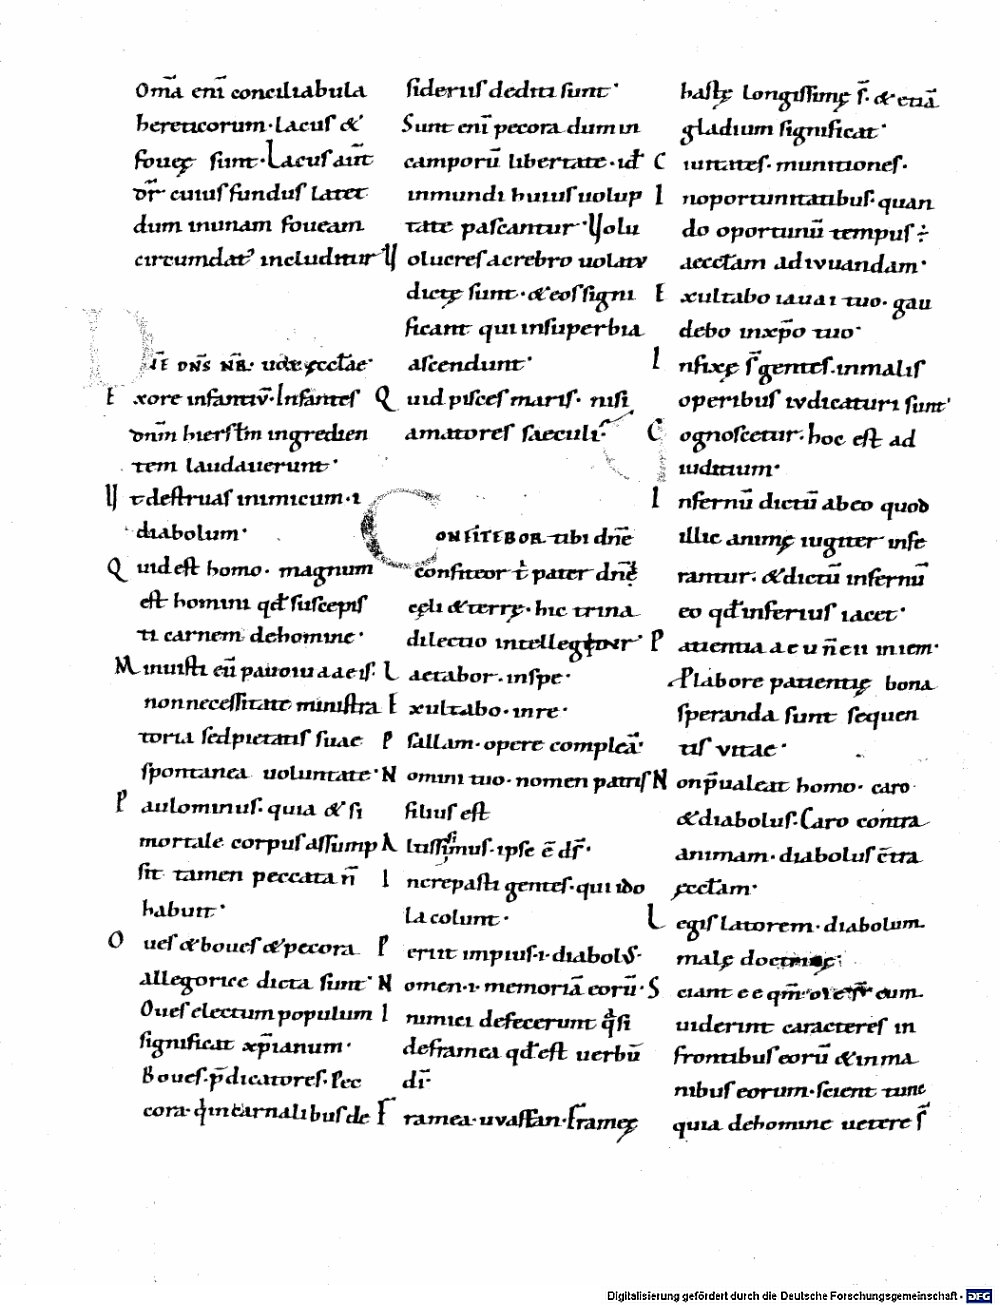 Om̄a enī conciliabula
hereticorum· Lacus &
foueę sunt· Lacus aut̄
dr̄ cuius fundus Latet
dum inunam foueam
circumdat᾿ includitur
DNE DN̄S NR̄· ude ęccl̄ae·
Ex ore infantiū· Infantes
dn̄m hierl̄m ingredien
tem laudauerunt·
Vt destruas inimicum·i·
diabolum·
Quid est homo· magnum
est homini qđ suscepis
ti carnem dehomine·
Minuisti eū
non necessitate ministra
toria sed pietatis suae
spontanea uoluntate·
Paulominus· quia & si
mortale corpus assump
sit tamen peccata n̄
habuit·
Oues & boues & pecora
allegorice dicta sunt·
Oues electum populum
significat xp̄ianum·
Boues· p̄dicatores· Pec
cora· q̇ incarnalibus de
sideriis dediti sunt·
Sunt enī pecora dum in
camporū libertate· id̄
inmundi huius uolup
tate pascantur· Volu
Volucres a crebro uolatu
dictę sunt· & eos signi
ficant qui insuperbia
ascendunt·
Quid pisces maris· nisi
amatores saeculi·
CONFITEBOR tibi dn̄e
confiteor t̄ pater dn̄ę
cęli & terrę· hic trina
dilectio intellegitur·
Laetabor· inspe·
Exultabo· inre·
Psallam· opere compleā·
Nomini tuo· nomen patris
filius est
Altissimus· ipse ē ds̄·
Increpasti gentes· qui ido
la colunt·
Periit impius·i· diabolus·
Nomen·i· memoriā eorū·
Inimici defecerunt q̇si
deframea qđ est uerbū
dī·
Framea· uuaffan· Frameę
hastę longissimę s̄· & etiā
gladium significat·
Ciuitates· munitiones·
Inoportunitatibus· quan
do oportunū tempus ÷
aeccl̄am adiuuandam·
Exultabo in tuo· gau
debo inxp̄o tuo·
Infixę s̄ gentes· inmalis
operibus iudicaturi sunt·
Cognoscetur· hoc est ad
iuditium·
Infernū dictū abeo quod
illic animę iugiter infe
rantur· & dictū infernū
eo qđ inferius iacet·
Patientia
P labore patientię bona
speranda sunt sequen
tis vitae·
Non p̄ualeat homo· caro
& diabolus· Caro contra
animam· diabolus c̄tra
ęccl̄am·
Legis latorem· diabolum
malę doctrinę·
Sciant cum
uiderint caracteres in
frontibus eorū & in ma
nibus eorum· scient tunc
quia dehomine uetere s̄